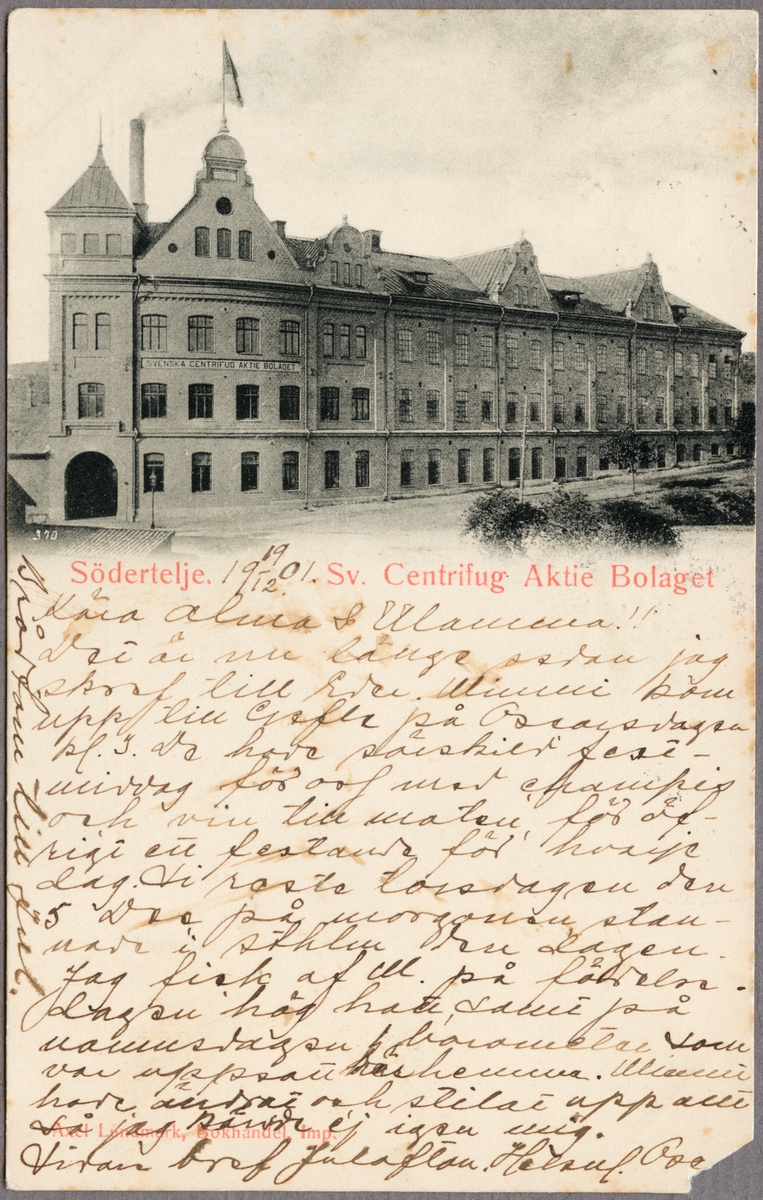 SVENSKA CENTRIFUG AKTIE BOLAGET
370
Södertelje. 19 19/12 01. Sv. Centrifug Aktie Bolaget
Kära Alma & Mamma!!
Det är nu länge sedan jag
skref till Eder. Mimmi kom
upp till Gefle på Oscarsdagen
kl. 3. De hade särskild fest-
middag för oss med champis
och vin till maten, för öf-
rigt ett festande för hvarje
dag. Vi reste torsdagen den
5 Dec på morgonen stan-
nade i Sthlm den dagen.
Jag fick af M. på födelse-
dagen hög hatt, samt på
namnsdagen barometer som
var uppsatt här hemma. Mimmi
hade ändrat och stilat upp allt
så jag kände ej igen mig.
Axel Lundmark, Bokhandel, Imp.
Sidan bref Julafton. Helsn.
som till Jul.